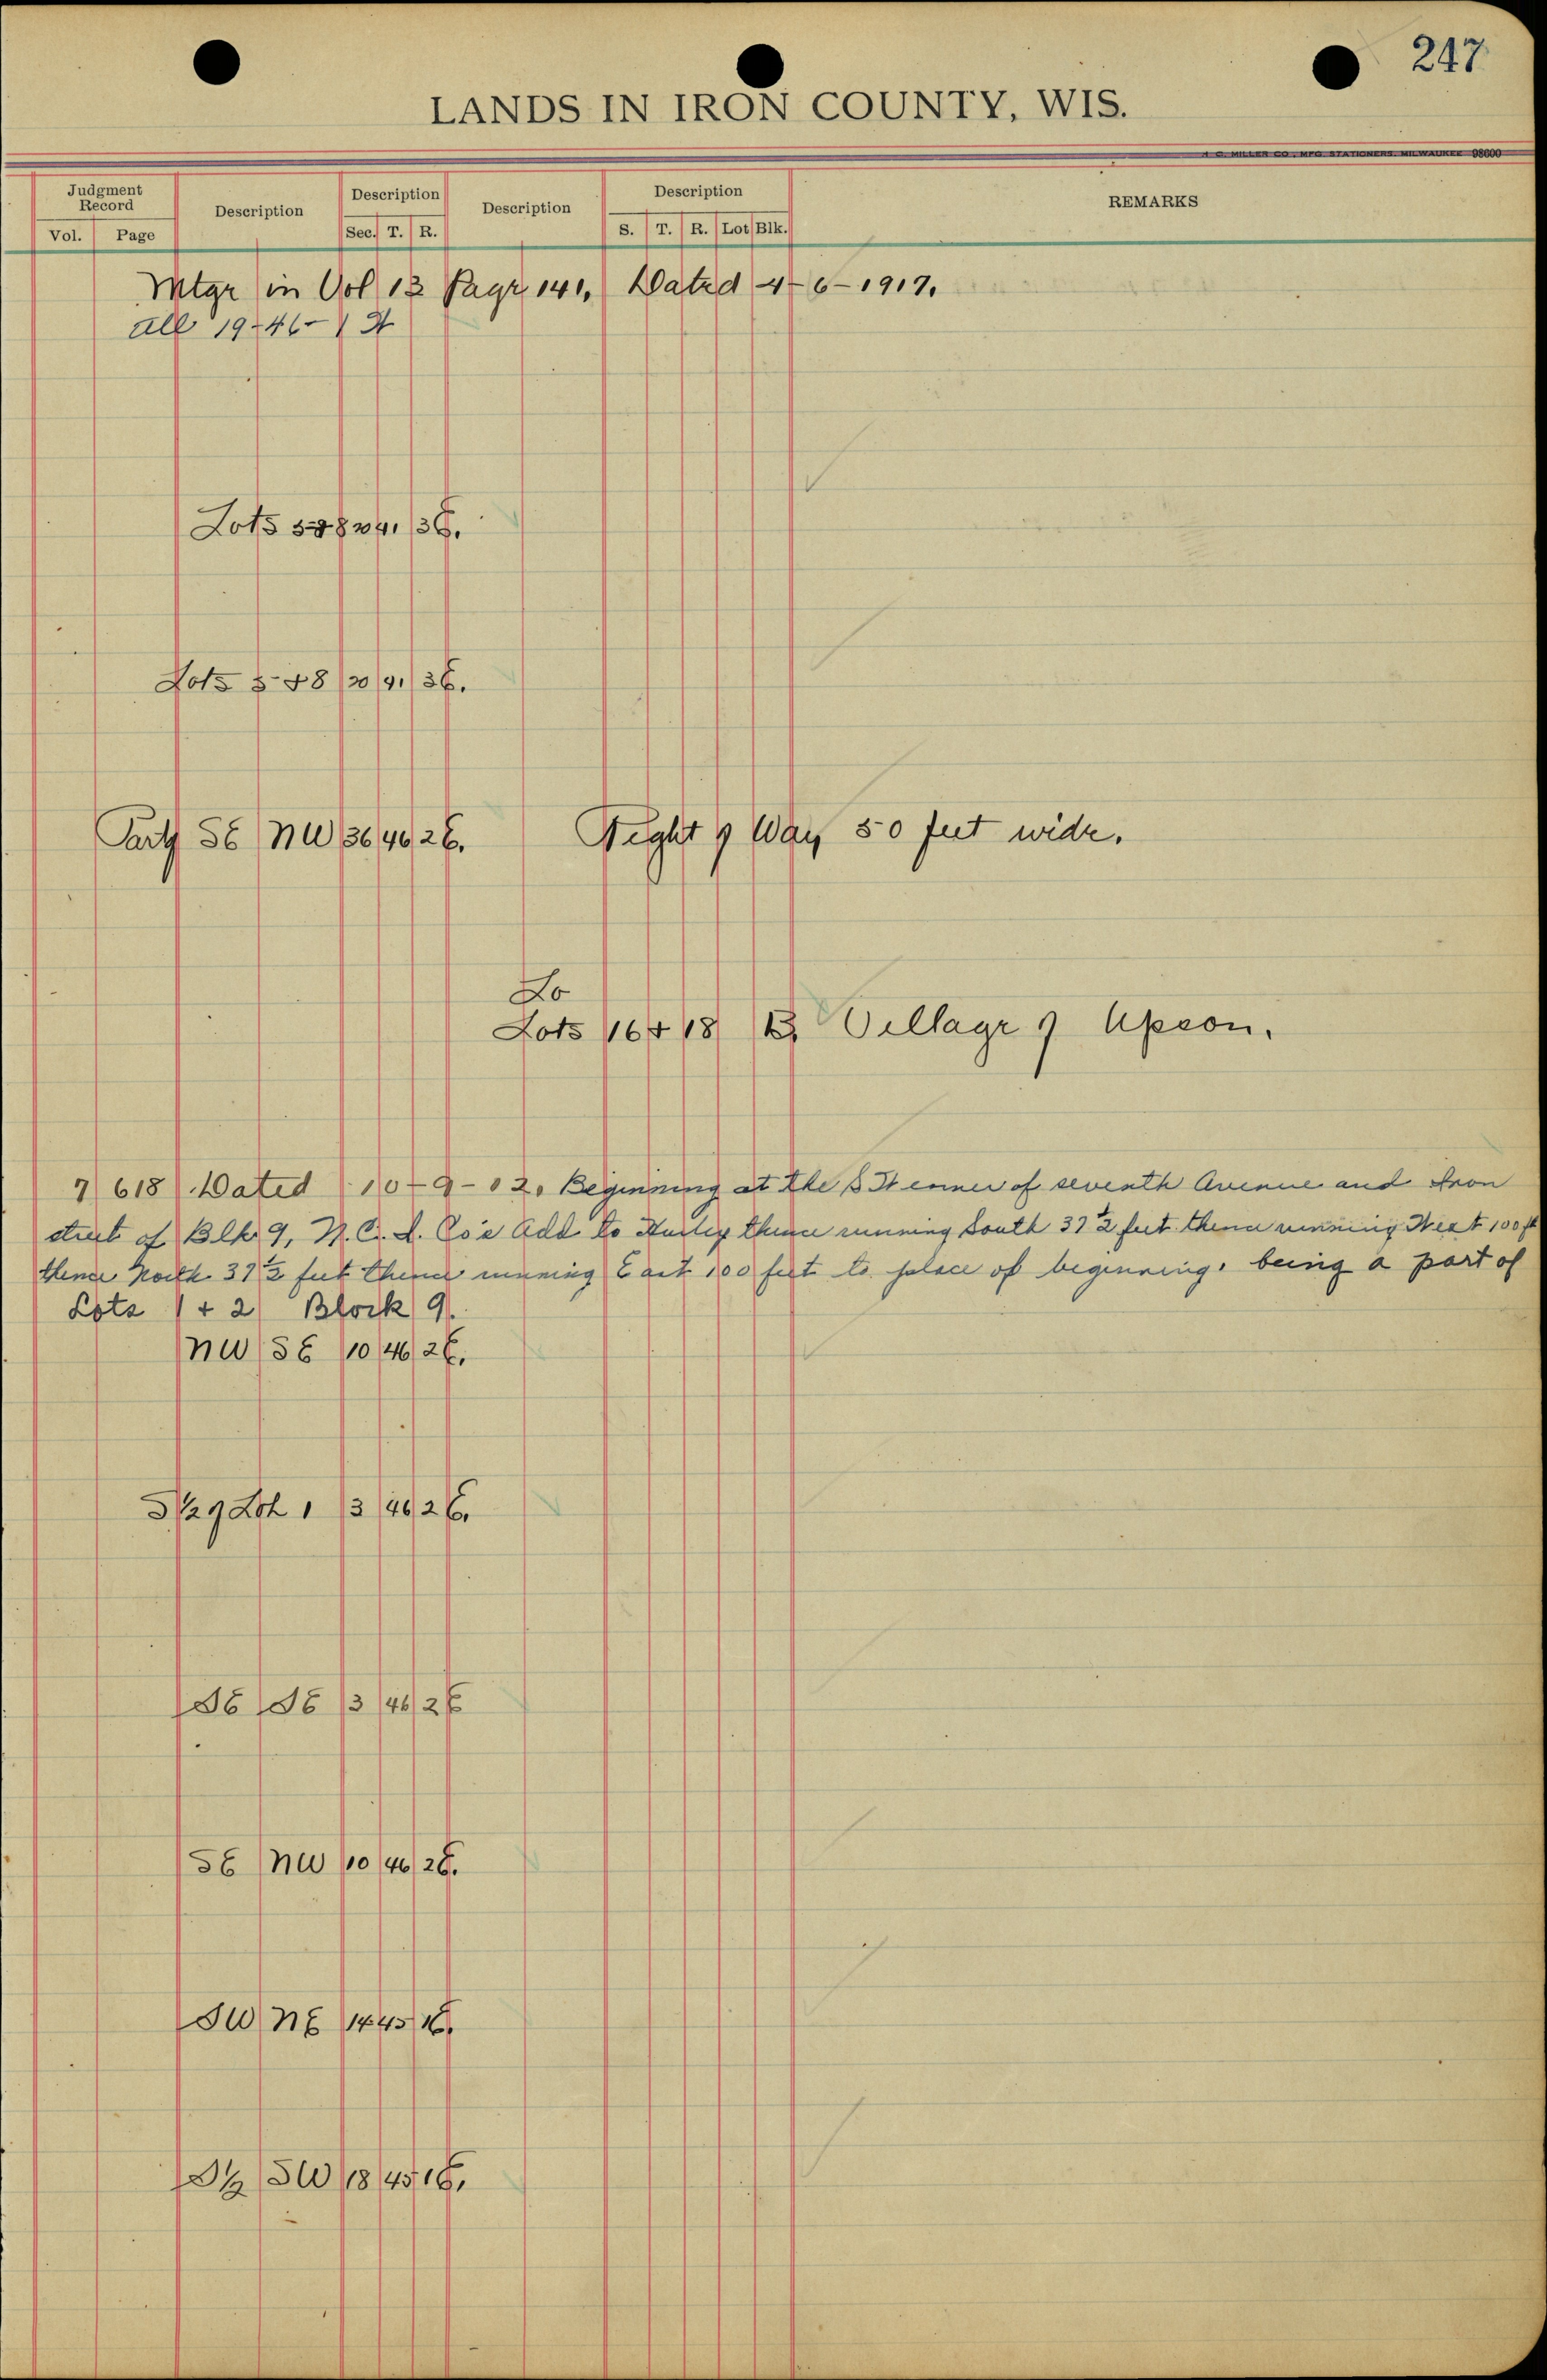 247
LANDS IN IRON COUNTY, WIS.
Judgment Record Description Description Description Description REMARKS
Vol. Page Sec. T. R. S. T. R. Lot Blk.
Mtge in Vol 13 Page 141, Dated 4-6-1917.
all 19-46-1
Lots 5 & 8 20 41 3E.
Lots 5 & 8 20 41 3E.
Part of SE NW 36 46 2E. Right of Way 50 feet wide.
Lo
Lots 16 & 18 Village of Upson.
7 618 Dated 10-9-02. Beginning at the of seventh Avenue and Iron
street of Blk 9, N. C. L. Co's Add to Hurley thence running South 37 1/2 feet thence running West 100 ft
thence North 37 1/2 feet thence running East 100 feet to place of beginning. being a part of
Lots 1 + 2 Block 9.
NW SE 10 46 2E.
S 1/2 of Lot 1 3 46 2E.
SE SE 3 46 2E
SE NW 10 46 2E.
SW NE 14 45 1E.
S 1/2 SW 18 45 1E.